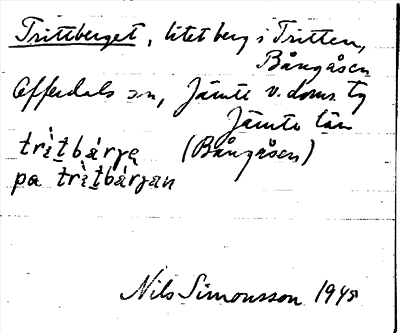 Trittberget, litet berg i Tritten,
Bångåsen
Offerdals sn, Jämtl v. doms. tg
Jämtl län
trìtbárję (Bångåsen)
pa trìtbárjan
Nils Simonsson 1948